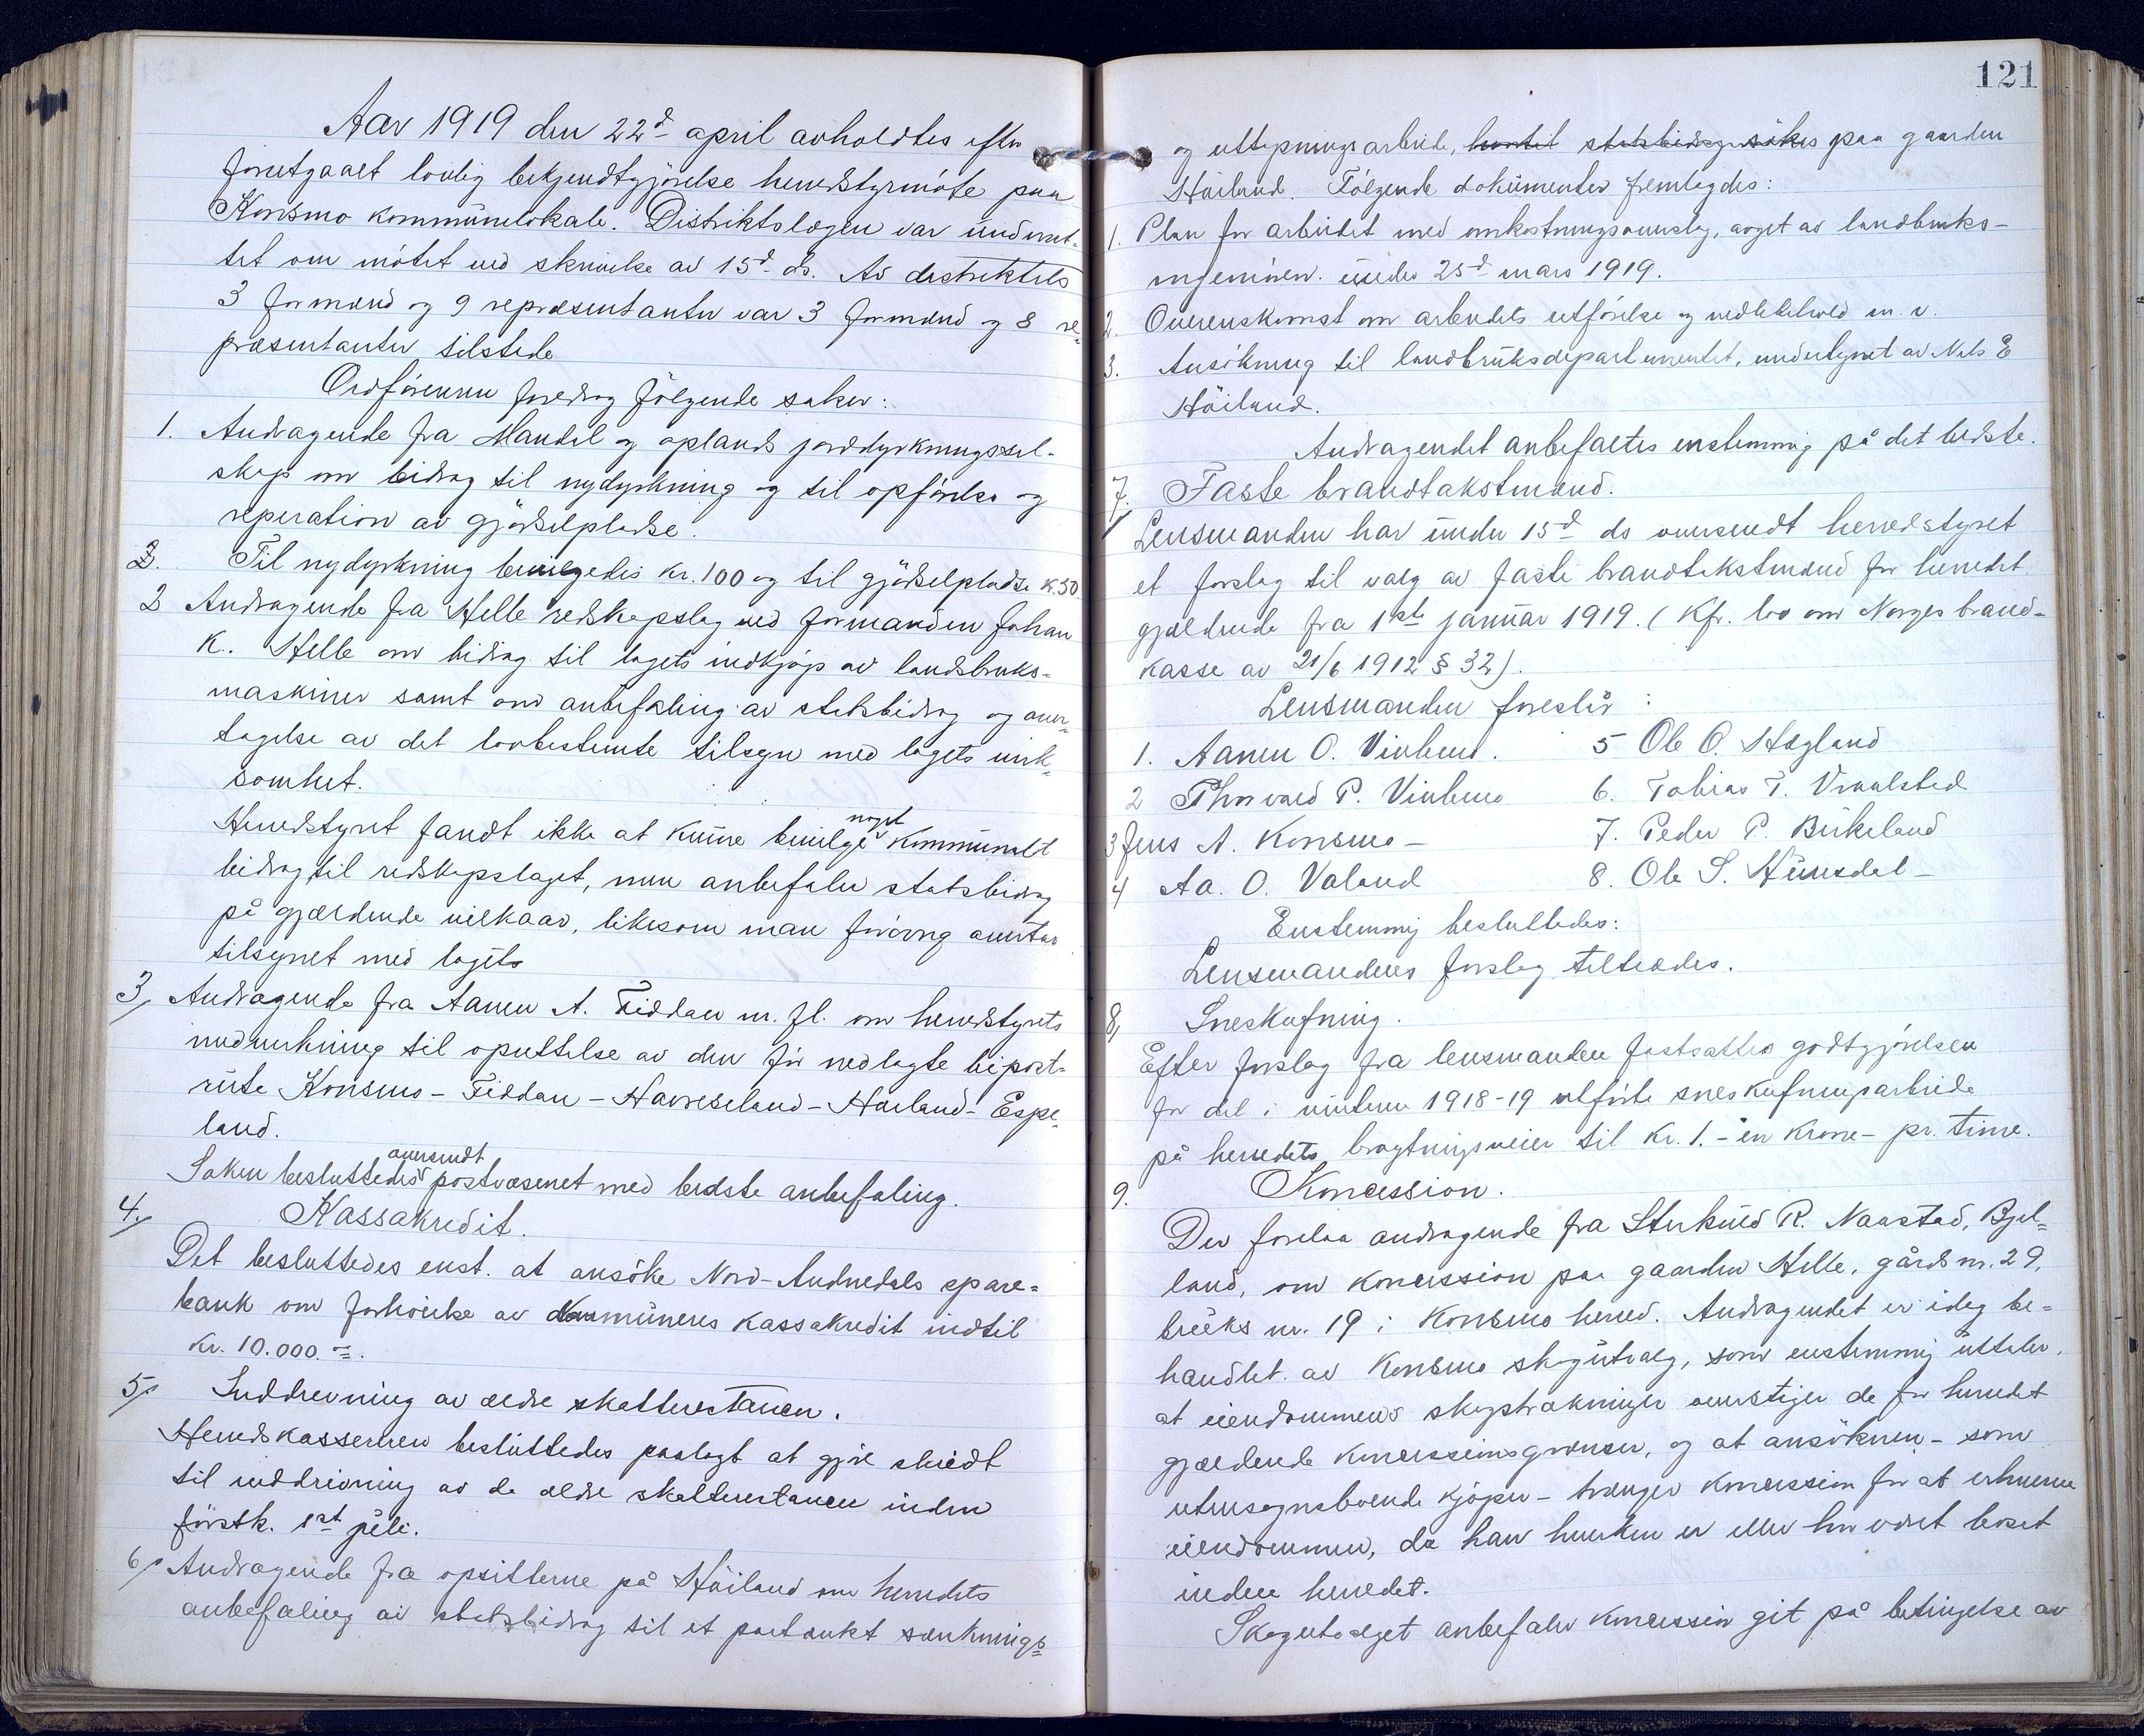 Aar 1919 den 22d april avholdtes efter
forutgaaet lovlig bekjendtgjörelse herredstyrmöte paa
Konsmo kommunelokale. Distriktslægen var underret-
tet om mötet ved skrivelse av 15d ds. Av distriktets
3 formænd og 9 repræsentanter var 3 formænd og 8 re-
præsentanter tilstede
Ordföreren foredrog fölgende saker:
1. Andragende fra Mandal og oplands jorddyrkningssel-
skap om bidrag til nydyrkning og til opförelse og
reperation av gjödselpladse.
2. Til nydyrkning bevilgedes kr. 100 og til gjödselpladse k. 50.
2 Andragende fra Helle redskapslag ved formanden Johan
K. Helle om bidrag til lagets indkjöp av landbruks-
maskiner samt om anbefaling av statsbidrag og over-
tagelse av det lovbestemte tilsyn med lagets virk-
somhet.
Herredstyret fandt ikke at kunne bevilge noget kommunalt
bidrag til redskapslaget, men anbefaler statsbidrag
på gjældende vilkaar, likesom man forövrig overtar
tilsynet med lagets
3, Andragende fra Aanen A. Fiddan m. fl. om herredstyrets
medvirkning til oprettelse av den för nedlagte bipost-
rute Konsmo - Fiddan - Havreseland - Harland - Espe-
land.
Saken besluttedes oversendt postvæsenet med bedste anbefaling.
4. Kassakredit.
Det besluttedes enst. at ansöke Nord-Audnedals spare-
bank om forhöielse av kommunens kassakredit indtil
kr. 10.000.-.
5, Inddrevning av ældre skatterestancer.
Herredskassereren besluttedes paalagt at gjöre skridt
til inddrivning av de ældre skatterestancer inden
förstk. 1st juli.
6, Andragende fra opsitterne på Höiland om herredets
anbefaling av statsbidrag til et paatænkt sænknings-
121
og uttapningsarbeide, hvortil statsbidrag sökes paa gaarden
Höiland. Fölgende dokumenter fremlagdes:
1. Plan for arbeidet med omkostningsoverslag, avget av landbruks-
ingeniören under 25d mars 1919.
2. Overenskomst om arbeidets utförelse og vedlikehold m. v.
3. Ansökning til landbruksdepartementet, undertegnet av Nils E
Höiland.
Andragendet anbefaltes enstemmig på det bedste.
7. Faste brandtakstmænd.
Lensmanden har under 15d ds oversendt herredstyret
et forslag til valg av faste brandtakstmænd for herredet
gjældende fra 1ste januar 1919. (Kfr. lov om Norges brand-
kasse av 21/6 1912 § 32).
Lensmanden foreslår:
1. Aanen O. Vivlemo. 5 Ole O. Høgland
2 Thorvald P. Vivlemo 6. Tobias T. Vraalsted
3 Jens A. Konsmo - 7. Peder P. Birkeland
4 Aa. O. Valand 8. Ole S. Hunsdal -
Enstemmig besluttedes:
Lensmandens forslag tiltrædes.
8, Sneskufning.
Efter forslag fra lensmanden fastsattes godtgjörelsen
for det i vinteren 1918-19 utförte sneskufningsarbeide
på herredets bragtningsveier til kr. 1.- en krone - pr. time.
9. Koncession.
Der forelaa andragende fra Sterkued R. Naastad, Bjel-
land, om koncession paa gaarden Helle, gårds nr. 29,
bruks nr. 19 i Konsmo herred. Andragendet er idag be-
handlet av Konsmo skogutvalg, som enstemmig uttaler,
at eiendommens skogstrækninger overstiger de for herredet
gjældende koncessionsgrænser, og at ansökeren - som
utensognsboende kjöper - trænger koncession for at erhverve
eiendommen, da han hverken er eller har været bosat
inden herredet.
Skogutvalget anbefaler koncession git på betingelse av